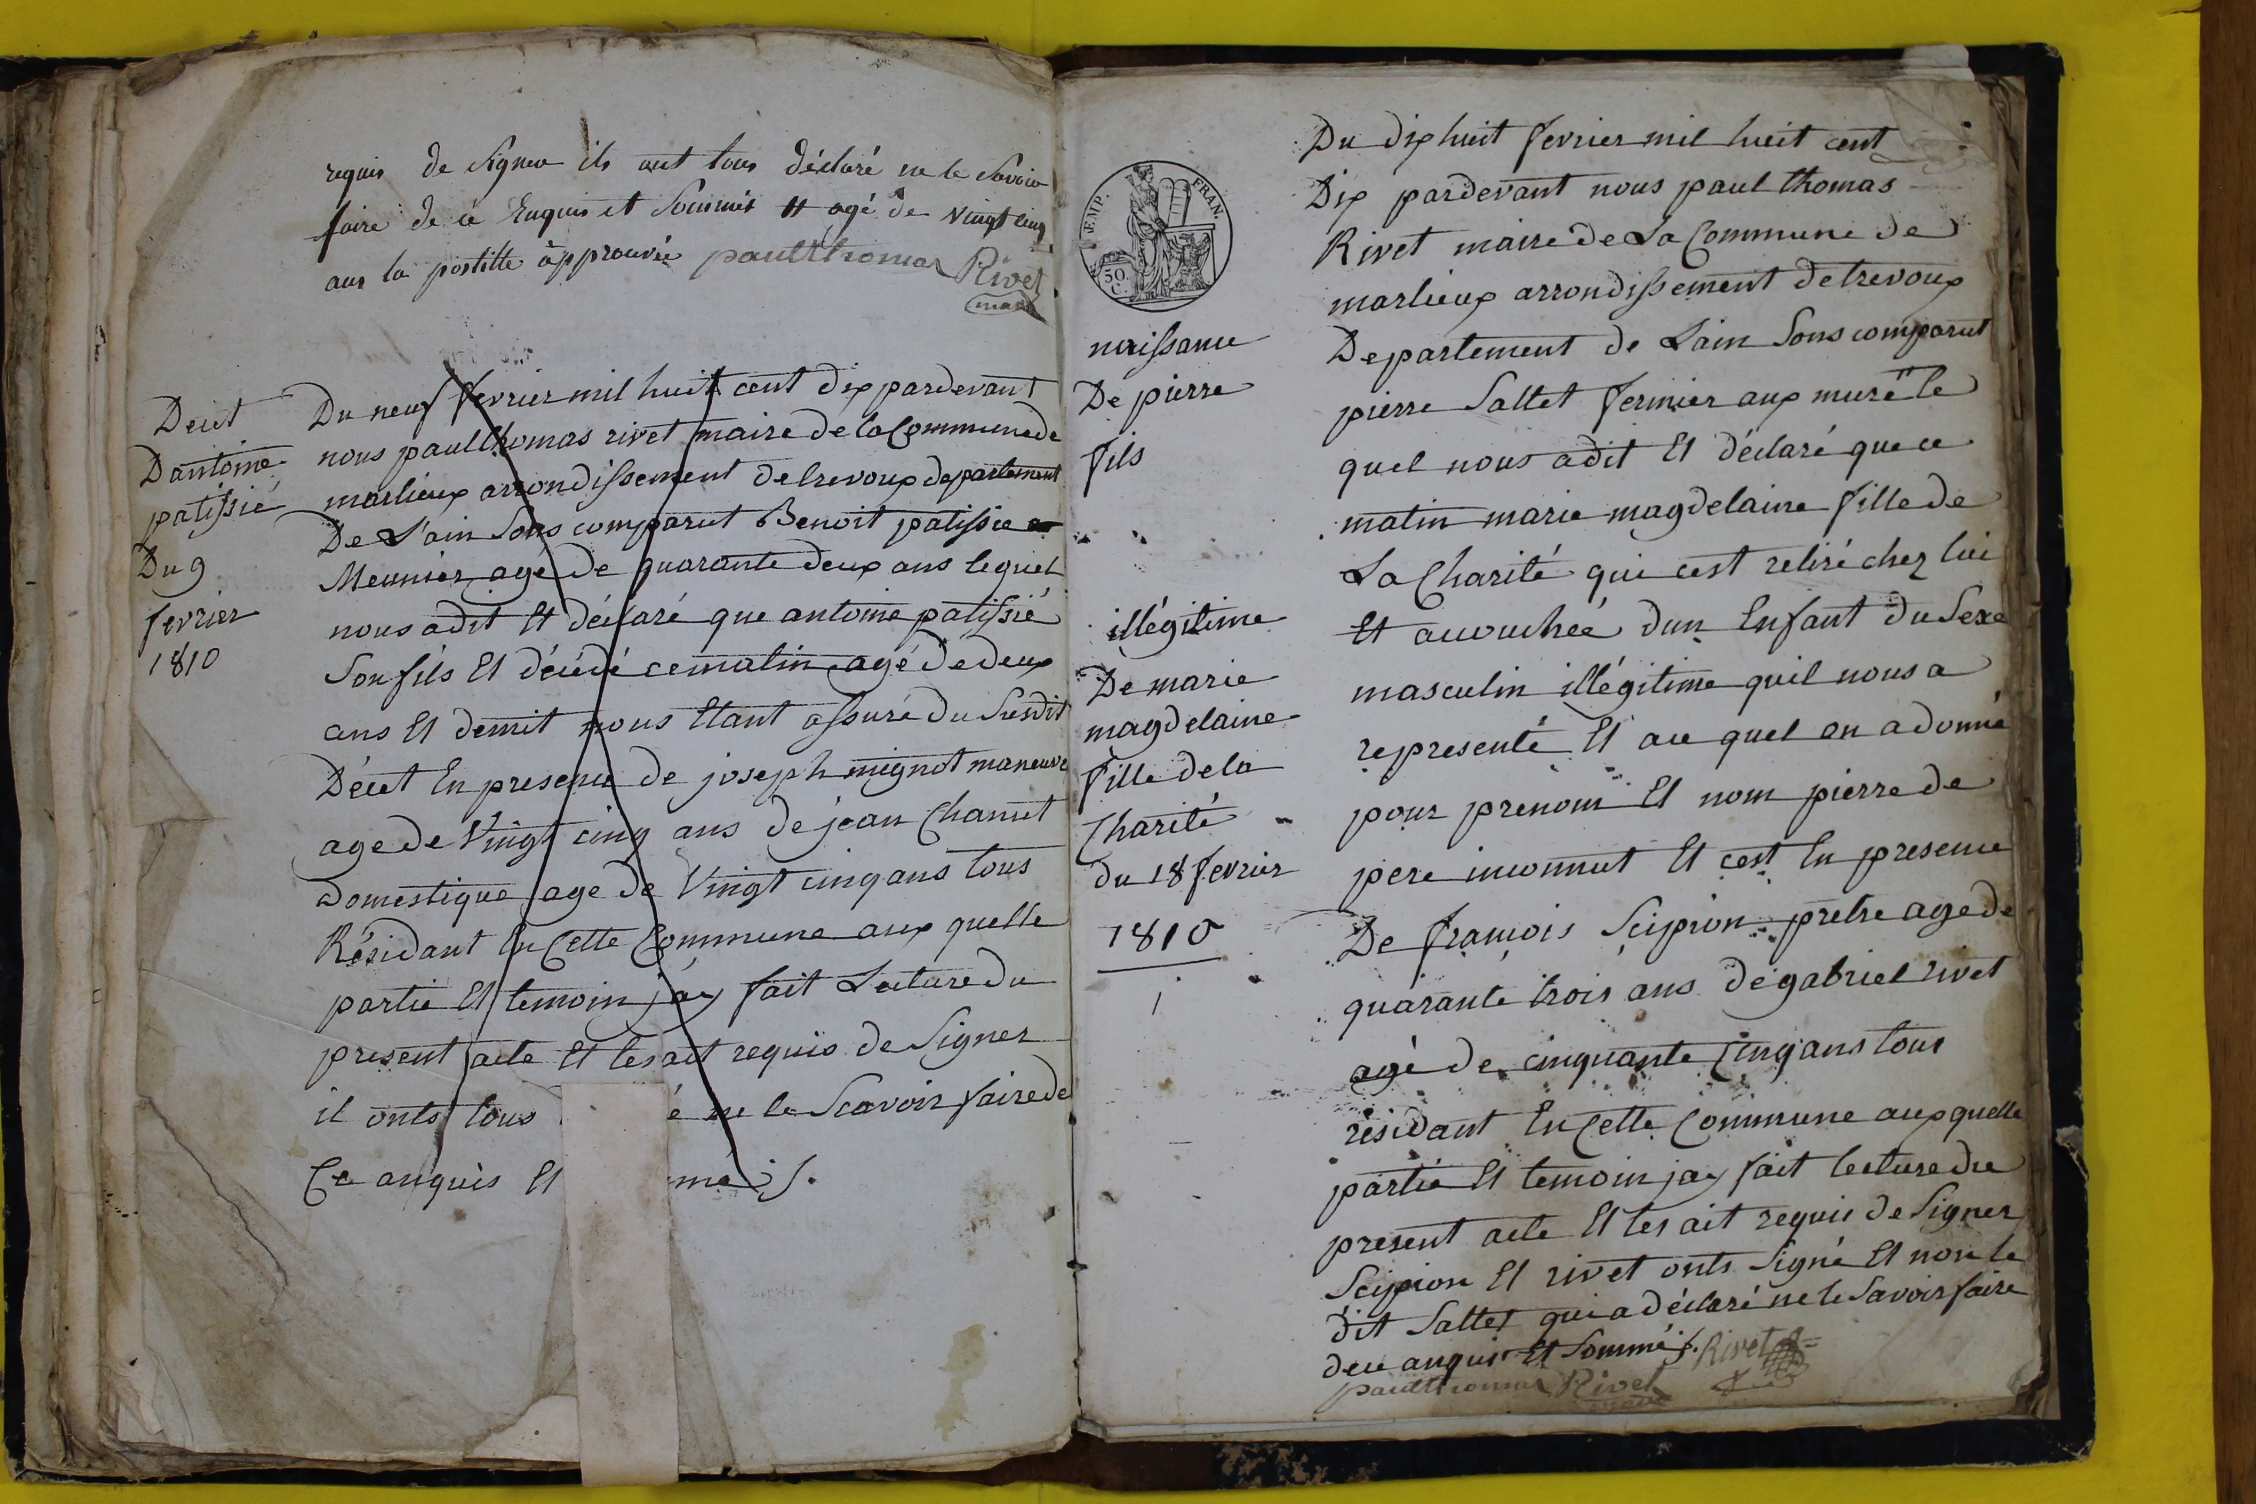 requis de Signer ils ont tous déclaré ne le Savoir
faire de ce Enquis et Sommés # agé de vingt cinq
ans la postille approuvée paulthomas Rivet
maire
Decet
Dantoine
patissié
Du 9
fevrier
1810
Du neuf fevrier mil huit cent dix pardevant
nous paul thomas rivet maire de la Commune de
marlieux arrondissement detrevoux departement
De L'ain Sons comparut Benoit patissie
Meunier agé de quarante deux ans lequel
nous adit Et déclaré que antoine patissié
Son fils Et décédé cematin agé dedeux
ans Et demit nous Etant assuré du Susdit
Décet En presence de joseph mignot maneuvre
age de Vingt cinq ans de jean Chanut
Domestique age de Vingt cinq ans tous
Résidant En Cette Commune aux quelle
partie Et temoin j'ay fait Lecture du
present acte Et les ait requis de Signer
il onts tous é ne le Scavoir faire de
Ce anquis Et mé S.
EMP. FRAN.
50 C.
naissance
De pierre
fils
illégitime
De marie
magdelaine
fille dela
Charité
du 18 fevrier
1810
1
Du dix huit fevrier mil huit cent
Dix pardevant nous paul thomas
Rivet maire de La Commune de
marlieux arrondissement detrevoux
Departement de Lain Sons comparut
pierre Saltet fermier aux mure le
quel nous adit Et déclaré que ce
matin marie magdelaine fille de
La Charité qui cest retiré chez lui
Et accouchée dun Enfant du Sexe
masculin illégitime quil nous a
representé Et au quel on adonné
pour prenom Et nom pierre de
pere inconnut Et cest En presence
De françois Scipion pretre age de
quarante trois ans de gabriel rivet
agé de cinquante Cinq ans tous
résidant En Cette Commune aux quelle
partie Et temoin jay fait lecture du
present acte Et les ait requis de Signer
Scipion Et rivet onts Signé Et non le
dit Saltet qui a déclaré ne le Savoir faire
dece anquis Et Sommé S. Rivet
paulthomas Rivet
maire